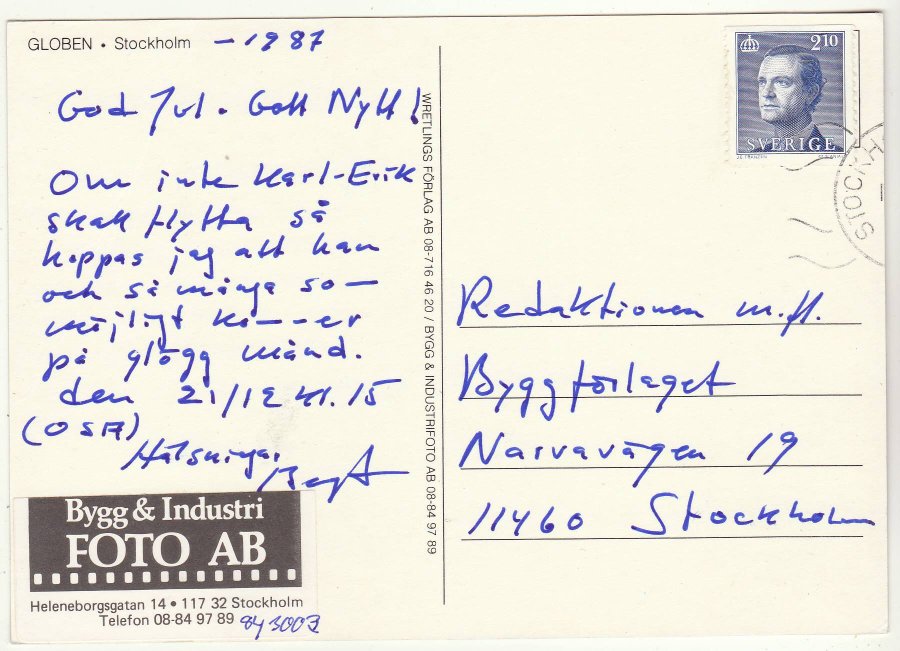 GLOBEN • Stockholm – 1987
God Jul. Gott Nytt!
Om inte Karl-Erik
skall flytta så
hoppas jag att han
och så många som
möjligt kommer
på glögg månd.
den 21/12 kl. 15
(OSA)
Hälsningar
Bengt
Bygg & Industri
FOTO AB
Heleneborgsgatan 14 • 117 32 Stockholm
Telefon 08-84 97 89 843003
WRETLINGS FÖRLAG AB 08-716 46 20 / BYGG & INDUSTRIFOTO AB 08-84 97 89
2.10
SVERIGE
STOCKH
Redaktionen m.fl.
Byggförlaget
Narvavägen 19
11460 Stockholm